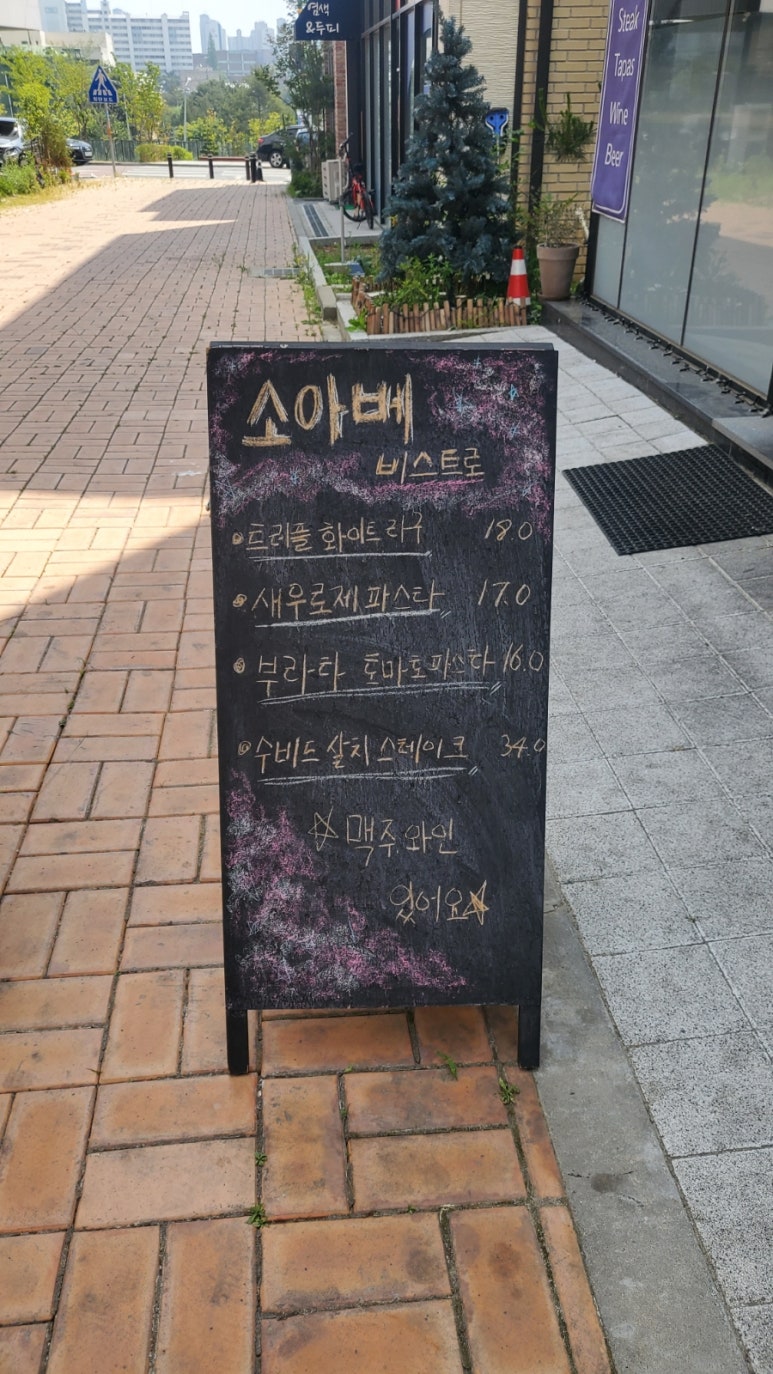 염색
&두피
Steak
Tapas
Wine
Beer
소아베
비스트로
트러플 화이트 라구 18.0
새우로제파스타 17.0
부라타 토마토파스타 16.0
수비드 살치 스테이크 34.0
☆ 맥주. 와인
있어요☆